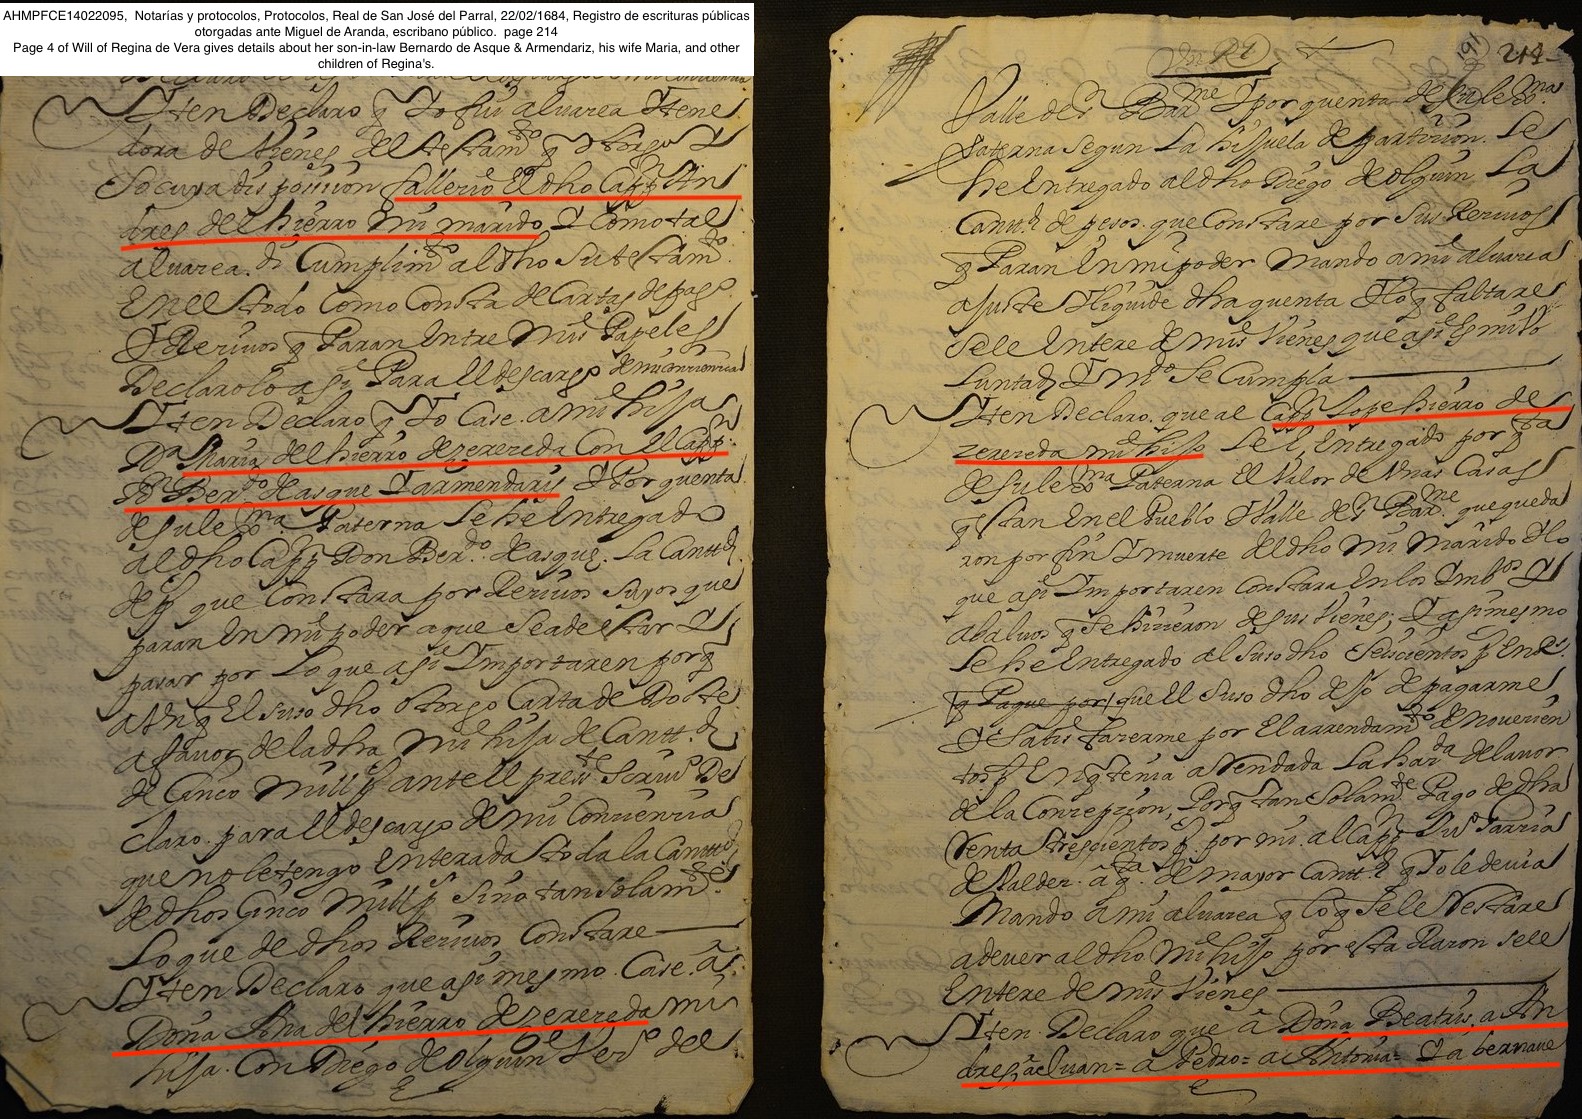 AHMPFCE14022095, Notarías y protocolos, Protocolos, Real de San José del Parral, 22/02/1684, Registro de escrituras públicas
otorgadas ante Miguel de Aranda, escribano público. page 214
Page 4 of Will of Regina de Vera gives details about her son-in-law Bernardo de Asque & Armendariz, his wife Maria, and other
children of Regina's.
Iten Declaro q Yo fui alvacea Y tene
dora de bienes del testamto q otorgo Y
so cuya disposicion fallecio el dho Capp An
dres del hierro mi marido Y como tal
alvacea di Cumplimto al dho su testamto
En el todo como Consta de Cartas de pago
Y Recivos q Paran Entre mis Papeles
Declarolo asi Para el descargo de mi conciencia
Iten Declaro q Yo Case a mi hija
Da Maria del hierro de zerereda Con el Capp
D Berdo de asque Y armendaris Y Por quenta
de su lexma Paterna le he Entregado
al dho Capp Don Berdo de asque la Cantd
de p que Constara por Recivos suyos que
paran En mi poder a que se a de estar Y
pasar por Lo que asi Importaren porq
aunq El suso dho otorgo Carta de Dote
a favor de la dha mi hija de Cantd
de Cinco mill p ante el preste scrivo De
claro para el descargo de mi Conciencia
que no le tengo Enterada toda la Cantd
de dhos Cinco mill p sino tan solamte
Lo que de dhos Recivos Constare
Iten Declaro que asi mesmo Case a
Doña Ana del hierro de zerereda mi
hija Con Diego de olguin Vero del
191 214
Valle de S Barme Y por quenta de su lexma
Paterna segun La hijuela de particion le
he Entregado al dho Diego de olguin La
Cantd de pesos que Constare por sus Recivos
q Paran En mi poder Mando a mi alvacea
ajuste Y liquide dha quenta Y lo q faltare
se le Entere de mis bienes que asi es mi Vo
luntad Y mdo se Cumpla
Iten Declaro que al Capp Lope hierro de
zerereda mi hijo le e Entregado por qta
de su lexma Paterna El valor de Unas Casas
q estan En el Pueblo Y Valle de S Barme que queda
ron por fin Y muerte del dho mi marido Y lo
que asi Importaren Constara En los Imbos Y
abaluos q se hicieron de sus bienes; Y asi mesmo
Le he Entregado al suso dho seiscientos p En Rs
q Pague por que El suso dho dejo de pagarme
Y satisfacerme por El arrendamto de novecien
tos p En q tenia arrendada La hasda de lavor
de la Concepcion, Porq tan solamte Pago de dha
Renta trescientos p por mi al Capp
de Valdes a qta de mayor Cantd q Yo le devia
Mando a mi alvacea q lo q se le Restare
a dever al dho mi hijo por esta Raron se le
Entere de mis bienes
Iten Declaro que a Doña Beatris, a An
dres, a Juan= a Pedro= a Antonia= Y a bernave